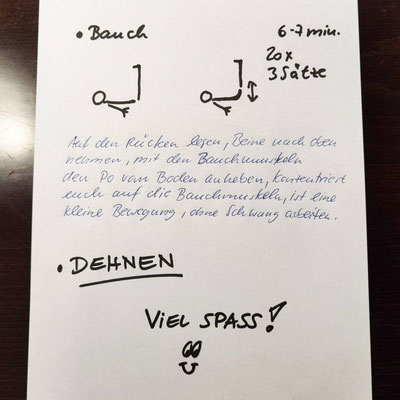 • Bauch
6-7 min.
20x
3 Sätze
Auf den Rücken legen, Beine nach oben
nehmen, mit den Bauchmuskeln
den Po vom Boden anheben, konzentriert
euch auf die Bauchmuskeln, ist eine
kleine Bewegung, ohne Schwung arbeiten.
• DEHNEN
VIEL SPASS!